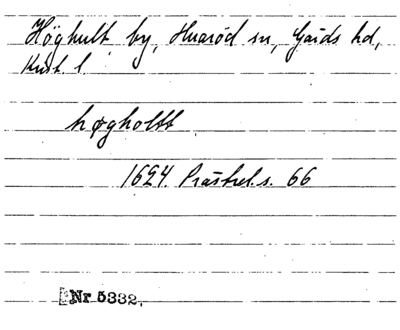 Höghult by, Huaröd sn, Gärds hd,
Krist. l.
høgholtt
1624. Prästrel. s. 66
Nr 5332.